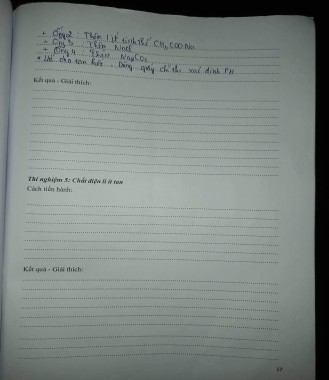 + Ống 2 : Thêm 1 ít tinh thể CH3COONa
+ Ống 3 : Thêm NaCl
+ Ống 4 : Thêm Na2CO3
* Lắc cho tan hết, Dùng giấy chỉ thị xác định PH
Kết quả - Giải thích:
Thí nghiệm 5: Chất điện li ít tan
Cách tiến hành:
Kết quả - Giải thích: